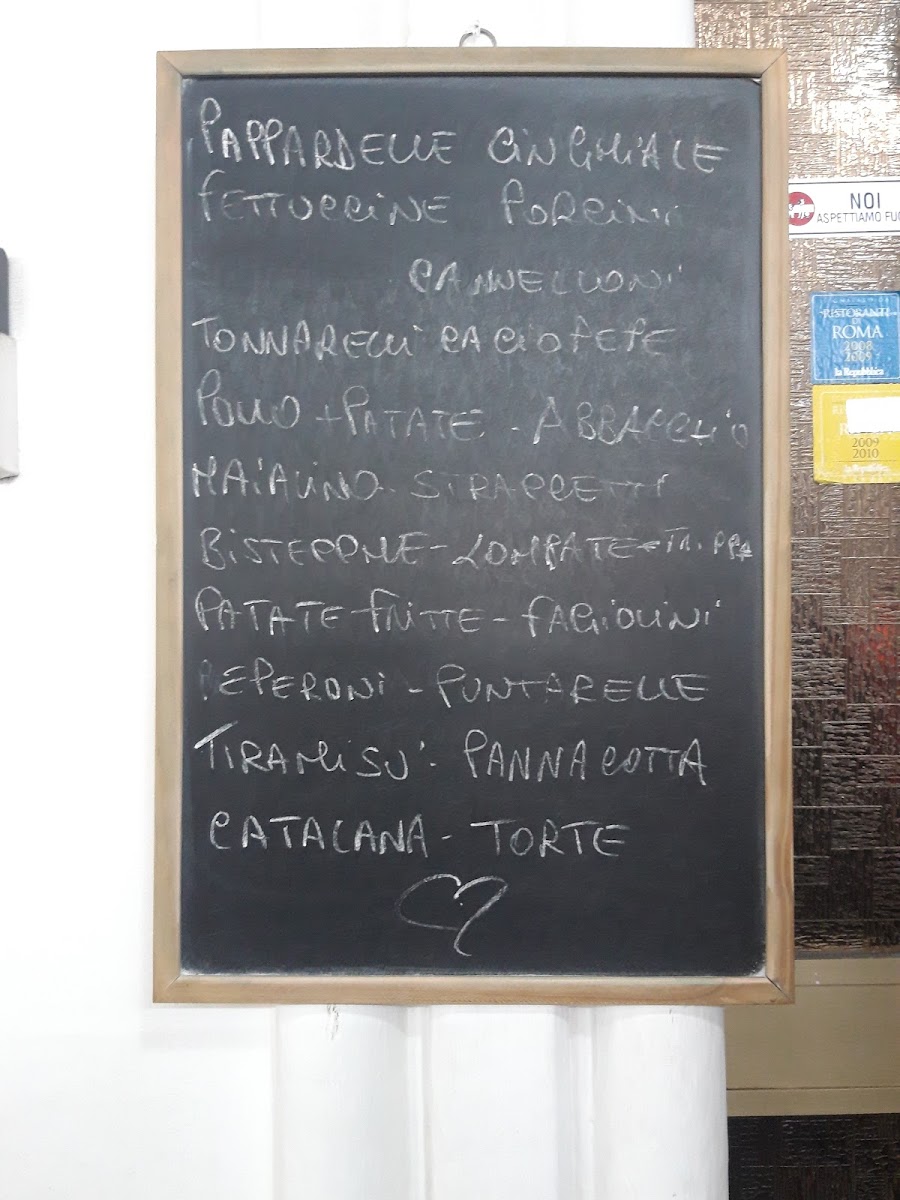 PAPPARDELLE CINGHIALE
FETTUCCINE PORCINI
CANNELLONI
TONNARELLI CACIOPEPE
POLLO + PATATE - ABBACCHIO
MAIALINO - STRACCETTI
BISTECCHE - LOMBATE - TRIPPA
PATATE FRITTE - FAGIOLINI
PEPERONI - PUNTARELLE
TIRAMISU' - PANNACOTTA
CATALANA - TORTE
NOI
ASPETTIAMO FUO
RISTORANTI
DI
ROMA
2008
2009
la Repubblica
2009
2010
la Repubblica